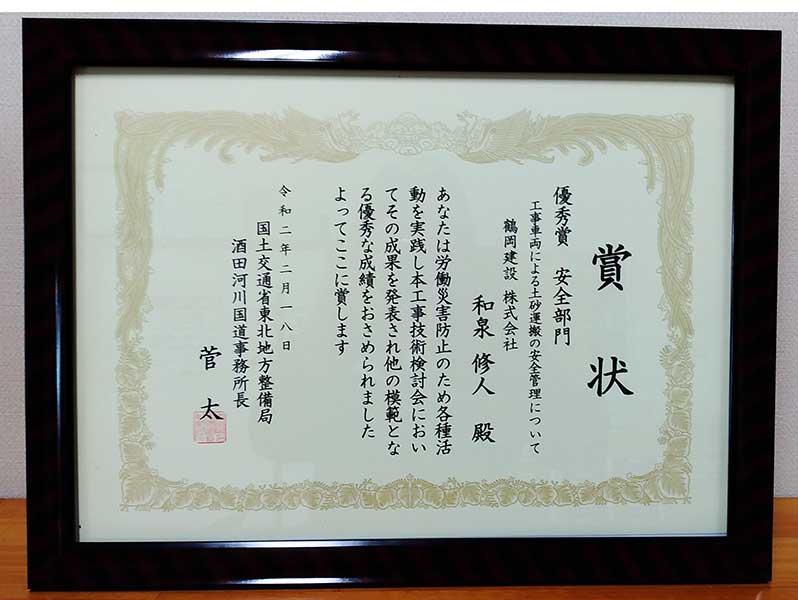 賞状
優秀賞 安全部門
工事車両による土砂運搬の安全管理について
鶴岡建設 株式会社
和泉 修人 殿
あなたは労働災害防止のため各種活
動を実践し本工事技術検討会におい
てその成果を発表され他の模範とな
る優秀な成績をおさめられました
よってここに賞します
令和二年二月一八日
国土交通省東北地方整備局
酒田河川国道事務所長
菅 太